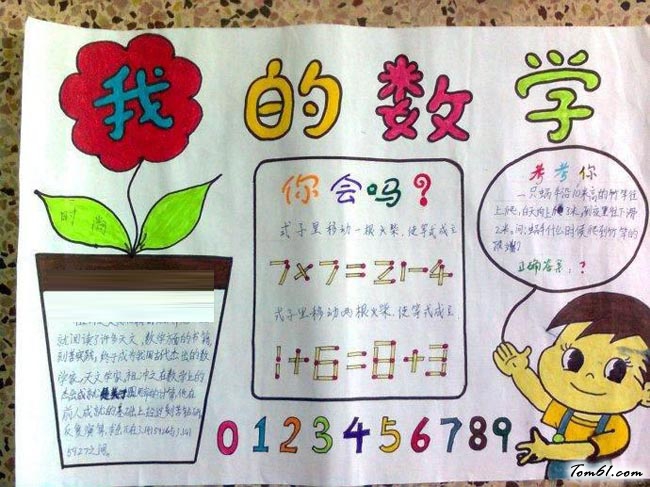 我的数学
时尚
就阅读了许多天文、数学方面的书籍,
刻苦实践,终于成为我国古代杰出的数
学家、天文学家。祖冲之在数学上的
杰出成就
前人成就的基础上经过刻苦钻研
反复演算,求出π在3.1415926与3.141
5927之间。
你会吗?
式子里移动一根火柴,使等式成立
7×7=21-4
式子里移动两根火柴,使等式成立
1+6=8+3
考考你
一只蜗牛沿10米高的竹竿往
上爬,白天向上爬3米,到夜里往下滑
2米。问:蜗牛什么时候爬到竹竿的
顶端?
正确答案:?
0123456789
Tom61.com